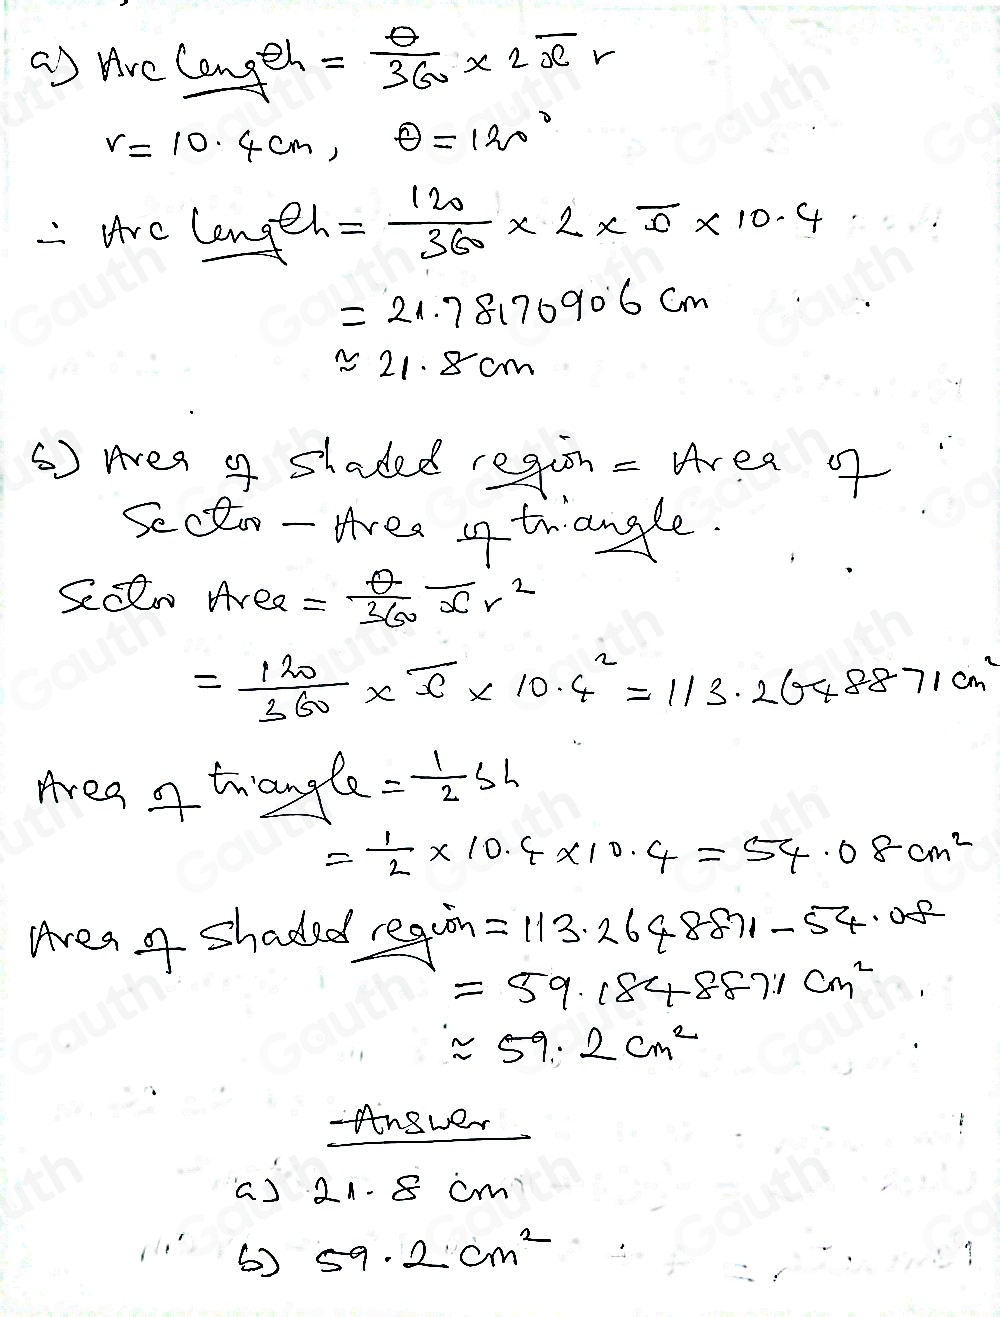 a) Arc Length = θ/360 × 2π r
r = 10.4cm, θ = 120°
∴ Arc length = 120/360 × 2 × π × 10.4
= 21.78170906 cm
≈ 21.8cm
b) Area of shaded region = Area of
Sector – Area of triangle.
Sector Area = θ/360 π r²
= 120/360 × π × 10.4² = 113.2648871 cm²
Area of triangle = 1/2 bh
= 1/2 × 10.4 × 10.4 = 54.08 cm²
Area of shaded region = 113.2648871 – 54.08
= 59.1848871 cm²
≈ 59.2 cm²
Answer
a) 21.8 cm
b) 59.2 cm²